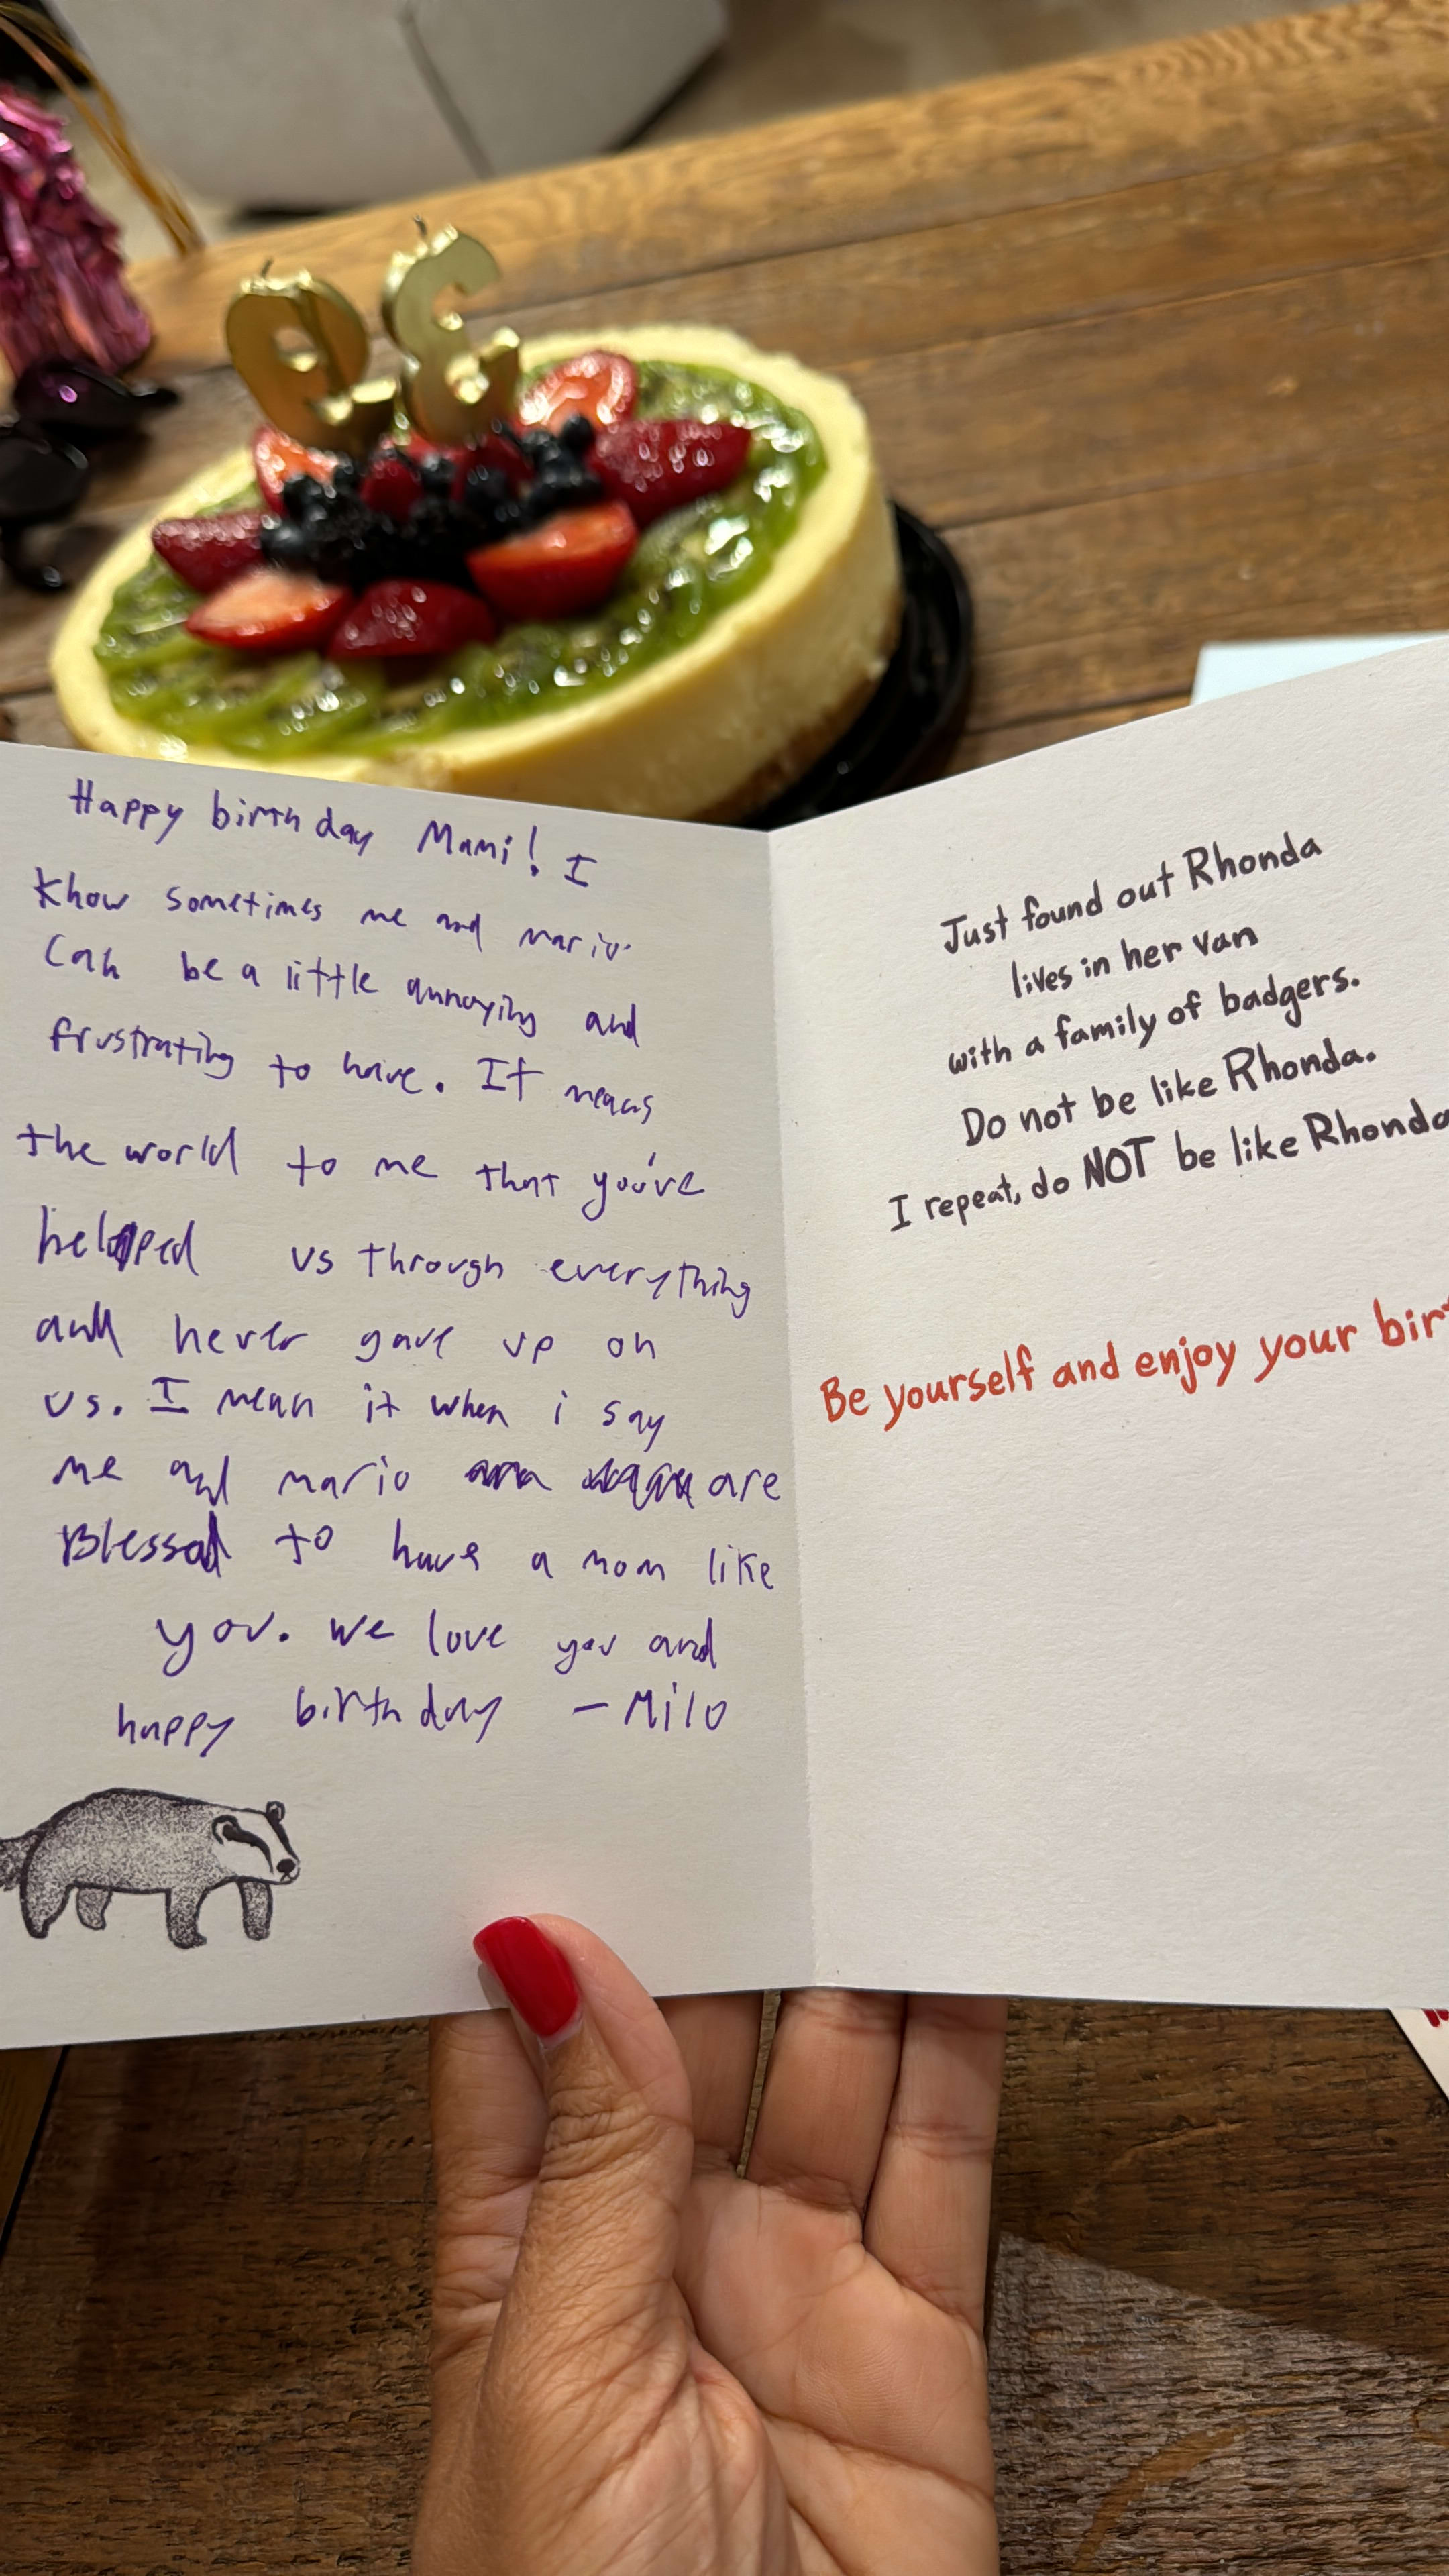 Happy birthday Mami! I
Know sometimes me and mario
Can be a little annoying and
frustrating to have. It means
the world to me that you've
helped us through everything
and never gave up on
us. I mean it when i say
me and mario are
Blessed to have a mom like
you. we love you and
happy birthday - Milo
Just found out Rhonda
lives in her van
with a family of badgers.
Do not be like Rhonda.
I repeat, do NOT be like Rhonda
Be yourself and enjoy your birt
39